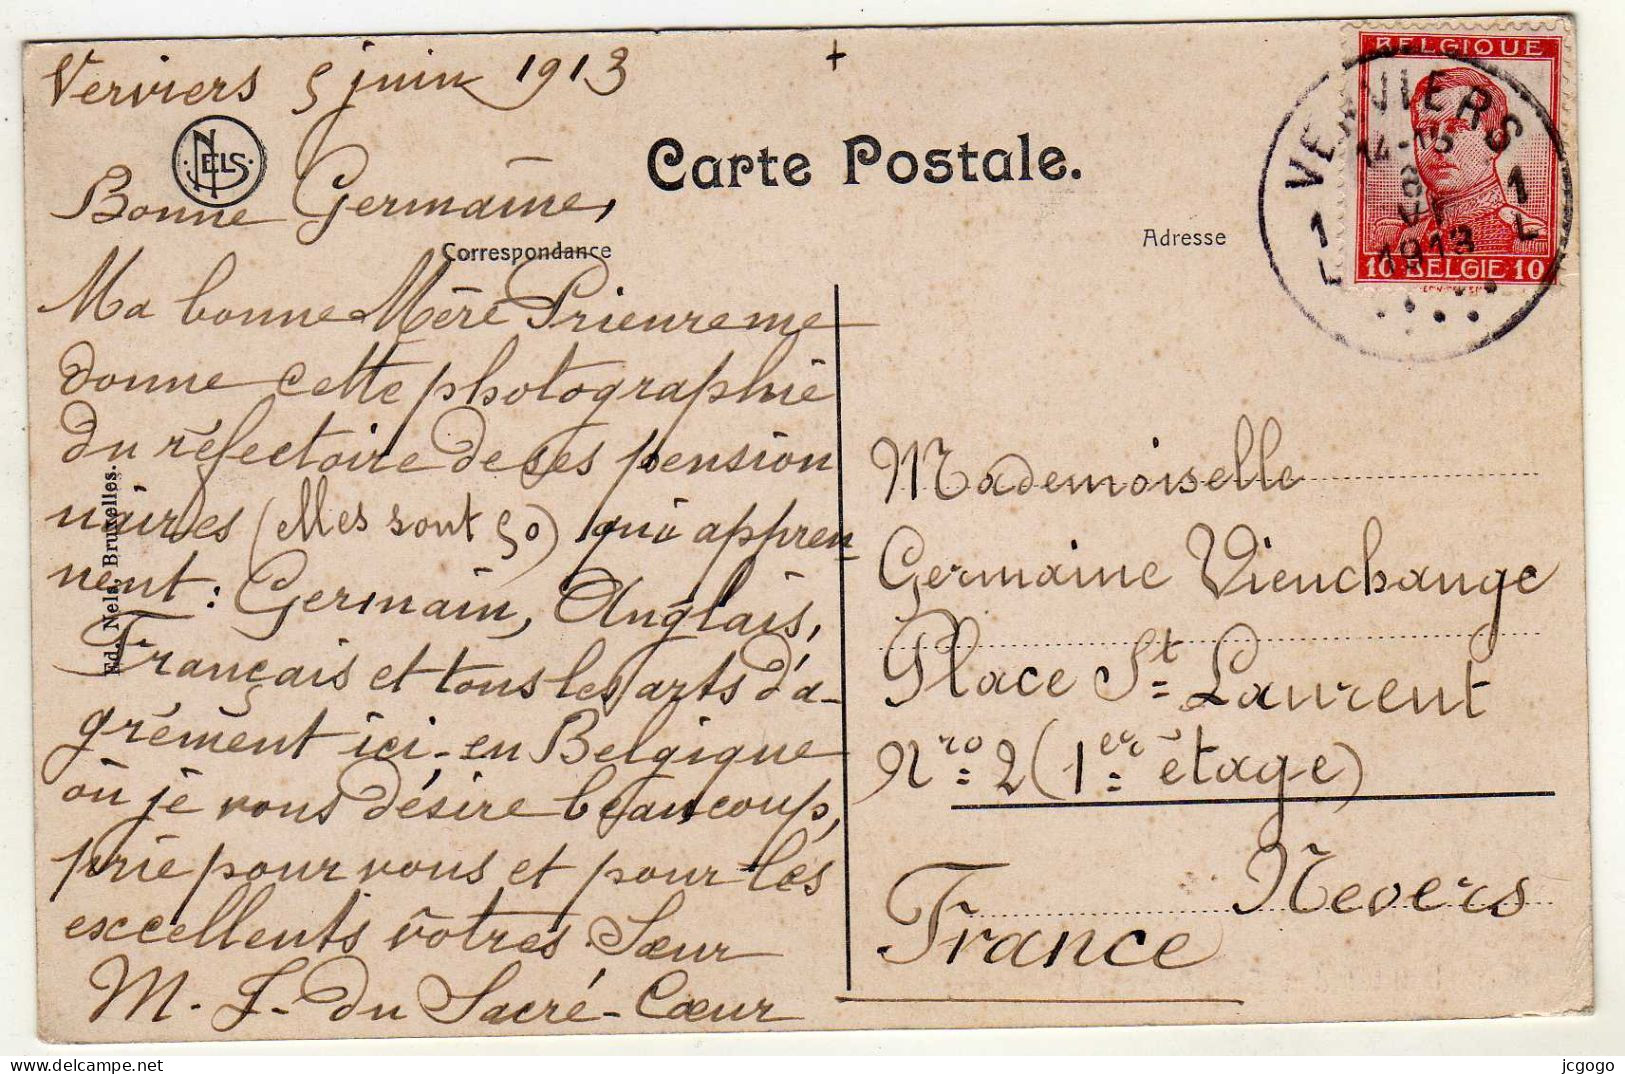 Verviers 5 juin 1913
+
NELS
Carte Postale.
Bonne Germaine,
Correspondance
Adresse
BELGIQUE
VERVIERS
14-15
8
VI
1913
1 1
L L
10 BELGIE 10
Ma bonne Mère Prieure me
donne cette photographie
du réfectoire de ses pension
naires (elles sont 50) qui appren-
nent: Germain, Anglais,
Français et tous les arts d'a-
grément ici-en Belgique
où je vous désire beaucoup,
prie pour vous et pour les
excellents vôtres. Sœur
M. J. du Sacré-Cœur
Ed. Nels, Bruxelles.
Mademoiselle
Germaine Vienchange
Place St Laurent
Nro 2 (1er étage)
Nevers
France
delcampe.net
jcgogo